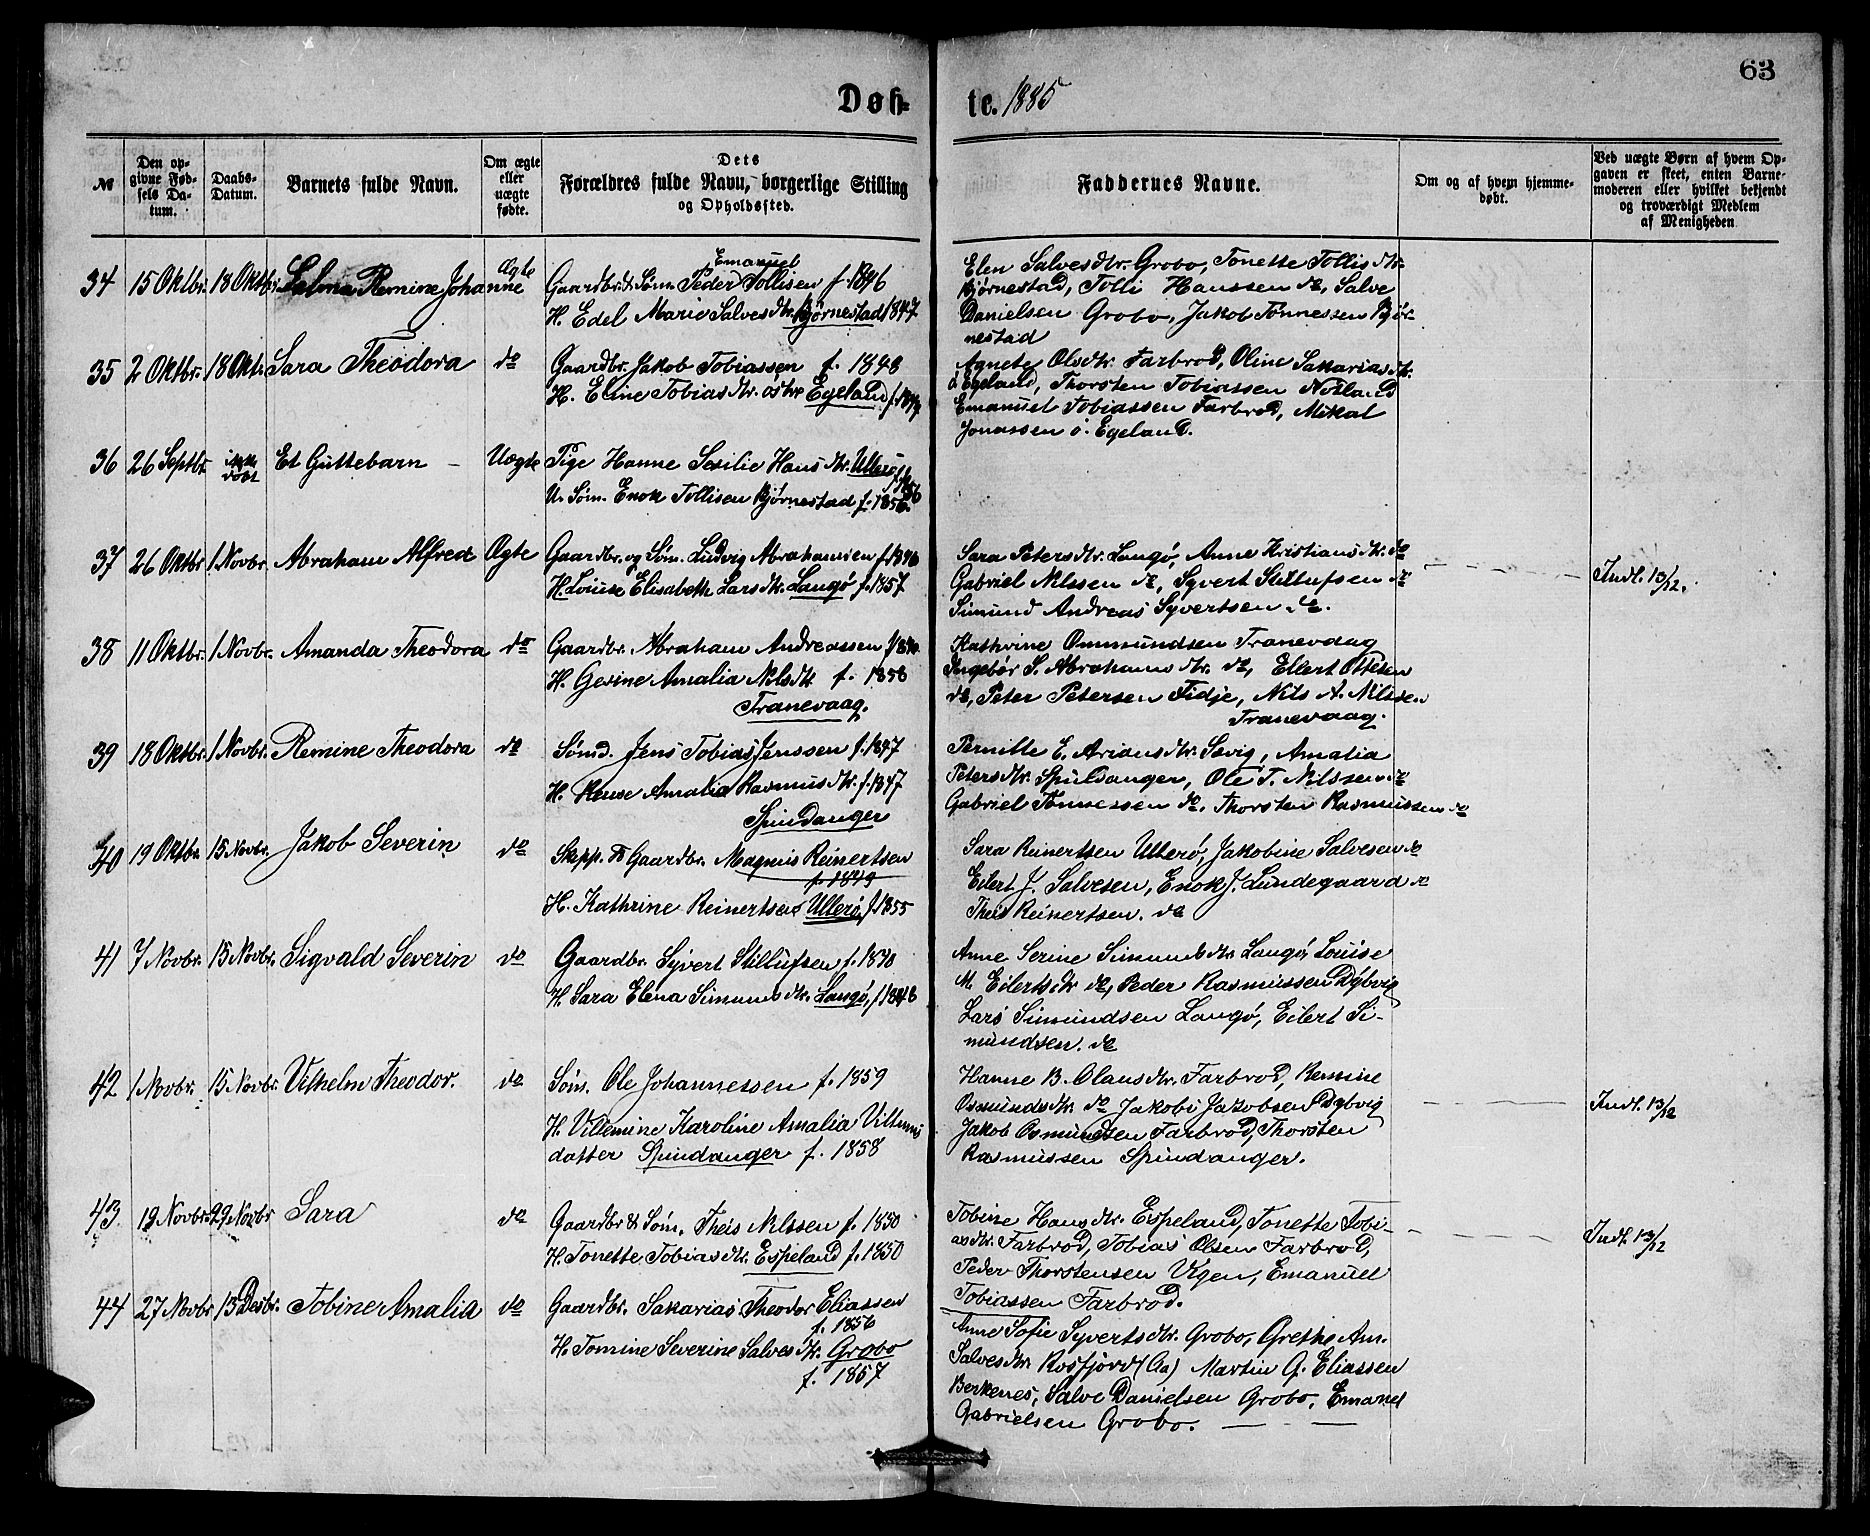 63
Døb- te. 1885
№
Den opgivne Fødsels Datum.
Daabs-Datum.
Barnets fulde Navn.
Om ægte eller uægte fødte.
Dets
Forældres fulde Navn, borgerlige Stilling
og Opholdssted.
Faddernes Navne.
Om og af hvem hjemmedøbt.
Ved uægte Børn af hvem Opgaven er skeet, enten Barnemoderen eller hvilket bekjendt og troværdigt Medlem af Menigheden
34 15 Oktbr. 18 Oktbr. Selma Remine Johanne Ægte
Gaardbr. & Søm. Peder Emanuel Tollisen f. 1846
H. Edel Marie Salvesdtr. Bjørnestad 1847
Elen Salvesdtr. Grobo, Tonette Tollisdtr.
Bjørnestad, Tolli Hanssen do, Salve
Danielsen Grobo, Jakob Tønnessen Bjør
nestad
35 2 Oktbr. 18 Okt. Sara Theodora do
Gaardbr. Jakob Tobiassen f. 1848
H. Eline Tobiasdtr. østre Egeland f.
Agnete Olsdtr. Farbrod, Oline Sakariasdtr.
ø Egeland, Thorsten Tobiassen Nøtland
Emanuel Tobiassen Farbrod, Mikal
Jonassen ø. Egeland.
36 26 Septbr. ikke døbt Et Guttebarn – Uægte
Pige Hanne Sesilie Hansdtr. Ullerø f. 1856
U. Søm. Enok Tollisen Bjørnestad f. 1856.
37 26 Oktbr 1 Novbr. Abraham Alfred Ægte
Gaardbr. og Søm. Ludvig Abrahamsen f. 1846
H. Lovise Elisabeth Larsdtr. Langø f. 1857
Sara Petersdtr. Langø, Anne Kristiansdtr. do
Gabriel Nilssen do, Syvert Stillufsen do
Simund Andreas Syvertsen do.
Indl. 13/12.
38 11 Oktbr. 1 Novbr. Amanda Theodora do
Gaardbr. Abraham Andreassen f.
H. Gesine Amalia Nilsdtr f. 1858
Tranevaag.
Kathrine Ommundsen Tranevaag
Ingebor S. Abrahamsdtr. do, Eilert Ottesen
do, Peter Petersen Fidje, Nils A. Nilssen
Tranevaag.
39 18 Oktbr. 1 Novbr. Remine Theodora do
Sømd. Jens Tobias Jenssen f. 1847
H. Rense Amalia Rasmusdtr. f. 1847
Spindanger
Pernille E. Ariansdtr. Sævig, Amalia
Petersdtr. Spindanger, Ole T. Nilssen do
Gabriel Tønnessen do, Thorsten Rasmussen do
40 19 Oktbr. 15 Novbr. Jakob Severin do
Skipp. & Gaardbr. Magnus Reinertsen
f. 1849
H. Kathrine Reinertsen Ullerø, f. 1855
Sara Reinertsen Ullerø, Jakobine Salvesen do
Eilert J. Salvesen, Enok J. Lundegaard do
Theis Reinertsen. do
41 7 Novbr. 15 Novbr. Sigvald Severin do
Gaardbr. Syvert Stillufsen f. 1840
H. Sara Elena Simunsdtr. Langø, f. 1848
Anne Serine Simunsdtr. Langø, Louise
M. Eilertsdtr do, Peder Rasmussen Dybvig
Lars Simundsen Langø, Eilert Si-
mundsen. do
42 1 Novbr. 15 Novbr. Vilhelm Theodor. do
Søm. Ole Johannessen f. 1859
H. Villemine Karoline Amalia Villums
datter Spindanger f. 1858
Hanne B. Olausdtr. Farbrod, Remine
Osmundsdtr. do Jakobi Jakobsen Dybvig
Jakob Osmundsen Farbrod, Thorsten
Rasmussen Spindanger.
Indl. 13/12
43. 19 Novbr. 29 Novbr Sara do
Gaardbr & Søm. Theis Nilssen f. 1850
H. Tonette Tobiasdtr. Espeland f. 1850
Tobine Hansdtr. Espeland, Tonette Tobi-
asdtr. Farbrod, Tobias Olsen Farbrod,
Peder Thorstensen Vigen, Emanuel
Tobiassen Farbrod.
Indl. 13/12
44 27 Novbr 13 Desbr. Tobine Amalia do
Gaardbr. Sakarias Theodor Eliassen
f. 1856
H. Tomine Severine Salvesdtr. Grobo
f. 1857
Anne Sofie Syvertsdtr. Grobo, Grethe Am.
Salvesdtr Rosfjord (Aa) Martin G. Eliassen
Berkenes, Salve Danielsen Grobo, Emanuel
Gabrielsen Grobo.